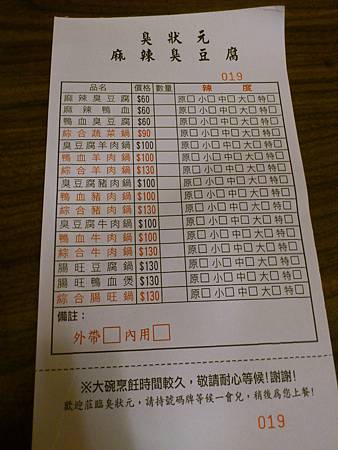 臭狀元
麻辣臭豆腐
019
品名 價格 數量 辣度
麻辣臭豆腐 $60 原□ 小□ 中□ 大□ 特□
麻辣鴨血 $60 原□ 小□ 中□ 大□ 特□
鴨血臭豆腐 $60 原□ 小□ 中□ 大□ 特□
綜合蔬菜鍋 $90 原□ 小□ 中□ 大□ 特□
臭豆腐羊肉鍋 $100 原□ 小□ 中□ 大□ 特□
鴨血羊肉鍋 $100 原□ 小□ 中□ 大□ 特□
綜合羊肉鍋 $130 原□ 小□ 中□ 大□ 特□
臭豆腐豬肉鍋 $100 原□ 小□ 中□ 大□ 特□
鴨血豬肉鍋 $100 原□ 小□ 中□ 大□ 特□
綜合豬肉鍋 $130 原□ 小□ 中□ 大□ 特□
臭豆腐牛肉鍋 $100 原□ 小□ 中□ 大□ 特□
鴨血牛肉鍋 $100 原□ 小□ 中□ 大□ 特□
綜合牛肉鍋 $130 原□ 小□ 中□ 大□ 特□
腸旺豆腐鍋 $130 原□ 小□ 中□ 大□ 特□
腸旺鴨血煲 $130 原□ 小□ 中□ 大□ 特□
綜合腸旺鍋 $130 原□ 小□ 中□ 大□ 特□
備註：
外帶□ 內用□
※大碗烹飪時間較久，敬請耐心等候!謝謝!
歡迎蒞臨臭狀元，請持號碼牌等候一會兒，稍後為您上餐!
019